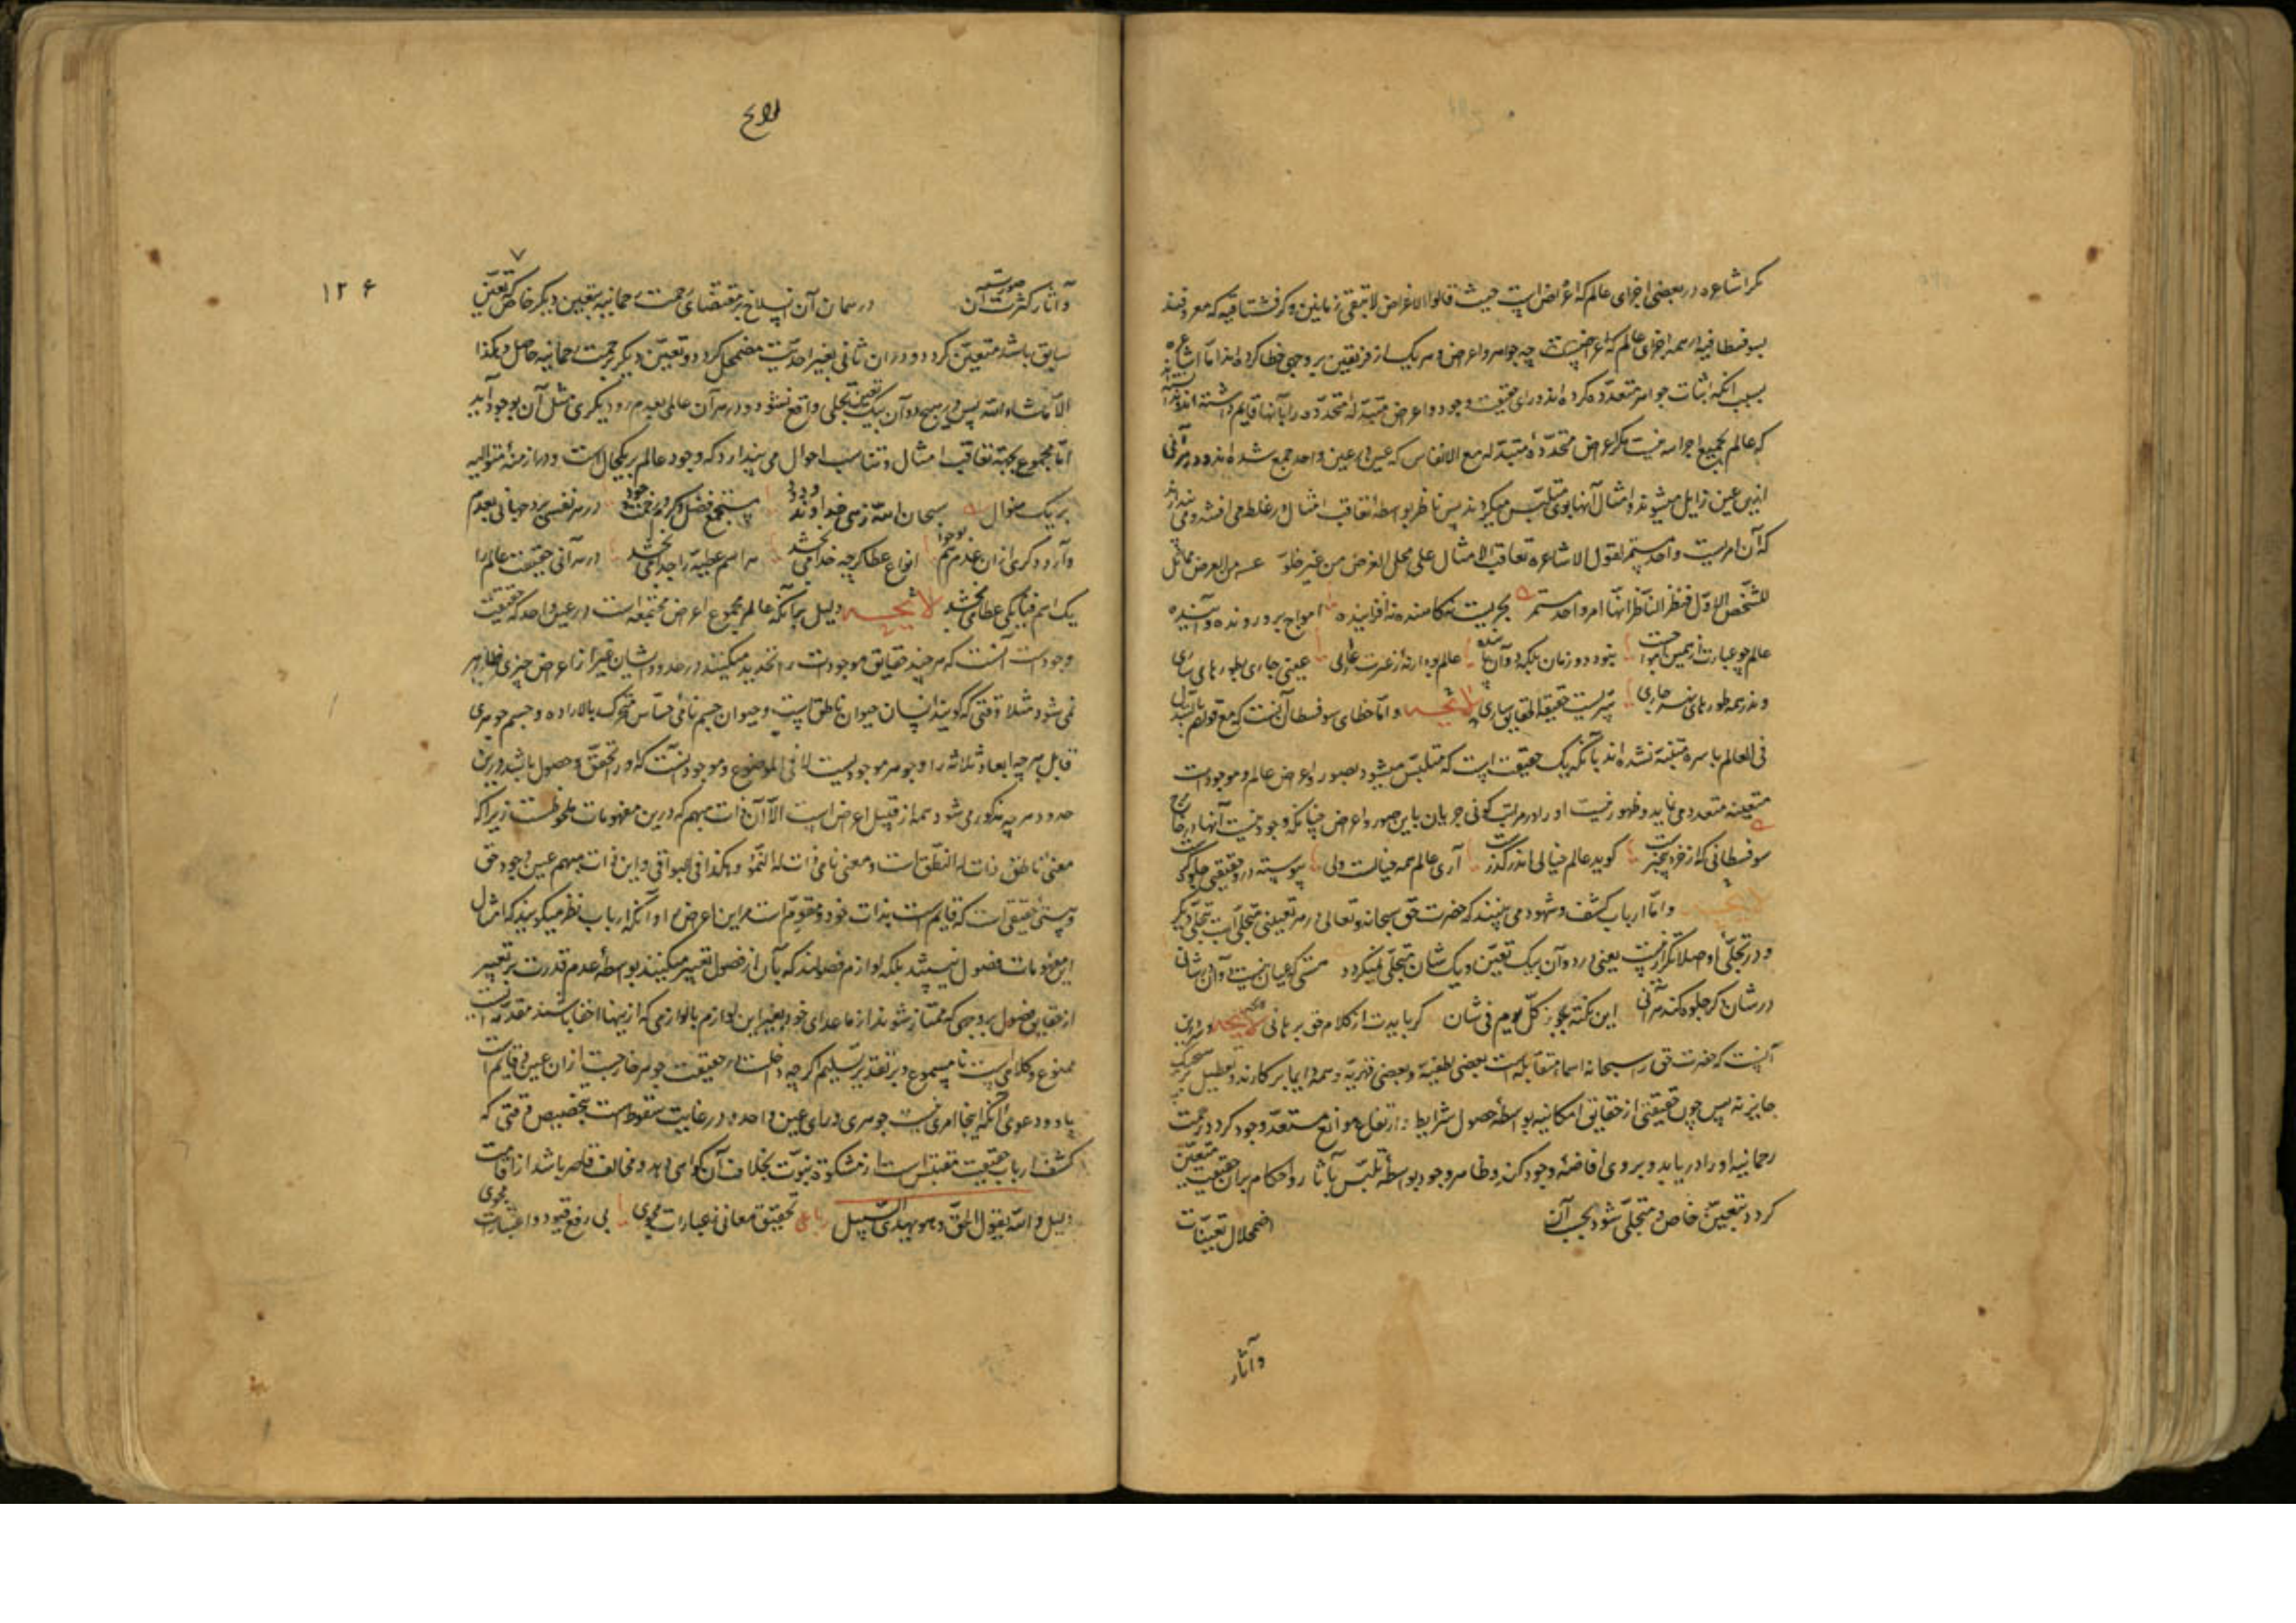 مگر اشاعره در بعضی اجزای عالم که اعراض است حیث قالوا الاعراض لا تبقی زمانین و مگر حسبانیه که معروفند
بسوفسطائیه در همه اجزای عالم چه جواهر و چه اعراض و هر یک از فریقین بر وجهی خطا کرده اند اما اشاعره
بسبب آنکه اثبات جواهر متعدده کرده اند ورای حقیقت وجود و اعراض متبدله متجدده را بآنها قایم داشته اند و ندانسته اند
که عالم بجمیع اجزایه نیست مگر اعراض متجدده متبدله مع الانفاس که در عین واحد جمع شده اند و در هر آنی
ازین عین زایل میشوند و امثال آنها بوی متلبس میگردند پس ناظر بواسطه تعاقب امثال در غلط می افتد و می پندارد
که آن امریست واحد مستمر کما یقول الاشاعره تعاقب الامثال علی محل العرض من غیر خلو من العرض مماثل
للشخص الاول فیظن الناظر انها امر واحد مستمر بحریست نه کاهنده نه افزاینده امواج برو رونده و آینده
عالم چو عبارت از همین امواجست نبود دو زمان بلکه دو آن پاینده عالم بود ار نه ز عبرت عاری عینی جاری بطورهای طاری
وندر همه طورهای جاری سریست حقیقة الحقایق ساری لایحه و اما خطای سوفسطائیه آنست که مع قولهم بالتبدل
فی العالم باسره متنبه نشده اند بآنکه یک حقیقت است که متلبس میشود بصور و اعراض عالم و موجودات
متعینه متعدد می نماید و ظهور نیست او را در مراتب کونی جز بآن باین صور و اعراض چنانکه وجود نیست اینها را در خارج
سوفسطائی که از خرد بیخبرست گوید عالم خیالی اندر گذرست آری عالم همه خیالست ولی پیوسته درو حقیقتی جلوه گرست
لایحه و اما ارباب کشف و شهود می بینند که حضرت حق سبحانه و تعالی در هر نفسی متجلی است بتجلی دیگر
و در تجلی او اصلا تکرار نیست یعنی در دو آن بیک تعین و یک شان متجلی نمیگردد هستی که عیان نیست دو آن در شانی
در شان دگر جلوه کند هر آنی این نکته بجو ز کل یوم فی شان گر بایدت از کلام حق برهانی لایحه و سر درین
آنست که حضرت حق را سبحانه اسماء متقابله است بعضی لطفیه و بعضی قهریه و همه دایما بر کارند و تعطیل بر هیچیک
جایز نه پس چون حقیقتی از حقایق امکانیه بواسطه حصول شرایط و ارتفاع موانع مستعد وجود گردد رحمت
رحمانیه او را در یابد و بر وی افاضه وجود کند و ظاهر وجود بواسطه تلبس بآثار و احکام بران حقیقت متعین
گردد بتعین خاص و متجلی شود بحسب آن اضمحلال تعینات
وآثار
لوایح
۱۲۶
وآثار کثرت صوریست در همان آن انسلاخ بر مقتضای رحمت رحمانیه بتعین دیگر خاص که تعین
سابق باشد متعین گردد و در آن ثانی بقهر احدیت مضمحل گردد و تعین دیگر برحمت رحمانیه حاصل و هکذا
الی ما شاء الله پس در هیچ دو آن بیک تعین تجلی واقع نشود و در هر آن عالمی بعدم رود و دیگری مثل آن بوجود آید
اما محجوب بجهة تعاقب امثال و تناسب احوال می پندارد که وجود عالم بر یک حال است و در ازمنه متوالیه
بر یک منوال سبحان الله زهی خداوند ودود مستجمع فضل و کرم و رحمت و جود در هر نفسی برد جهانی بعدم
وآرد دگری از آن عدم هم بوجود انواع عطا گر چه خدا می بخشد هر اسم عطیه را جدا می بخشد در هر آنی حقیقت عالم را
یک اسم فنا یکی عطا می بخشد لایحه دلیل بر آنکه عالم مجموع اعراض مجتمعه است در عین واحد که حقیقت
وجودست آنست که هر چند حقایق موجودات را تحدید میکنند در حدود ایشان غیر از اعراض چیزی ظاهر
نمی شود مثلا وقتی که گویند انسان حیوان ناطق است و حیوان جسم نامی حساس متحرک بالاراده و جسم جوهری
قابل مر ابعاد ثلاثه را و جوهر موجودیست لا فی الموضوع و موجود ذاتیست که او را تحقق و حصول باشد درین
حدود هر چه مذکور می شود همه از قبیل اعراض است الا آن ذات مبهم که درین مفهومات ملحوظست زیرا که
معنی ناطق ذات له النطق است و معنی نامی ذات له النمو و هکذا فی البواقی و این ذات مبهم عین وجود حق
و هستی حقیقی است که قایم است بذات خود و مقوم است مر این اعراض را و آنکه ارباب نظر میگویند که امثال
این مفهومات فصول نیستند بلکه لوازم فصولند که بآن از فصول تعبیر میکنند بواسطه عدم قدرت بر تعبیر
از حقایق فصول بر وجهی که ممتاز شوند از ماعدای خود بغیر این لوازم یا لوازمی که ازینها اخفی باشند مقدمه ایست
ممنوع و کلامی است نامسموع و بر تقدیر تسلیم هر چه داخلست در حقیقت جوهر خارجست از آن عین و قایم است
باو و دعوی آنکه اینجا امری هست جوهری ورای عین واحده در غایت سقوط است بتخصیص وقتی که
کشف ارباب حقیقت مقتبس است از مشکوة نبوت بخلاف آن گواهی دهد و مخالف قاصر باشد از اقامت
دلیل و الله یقول الحق و هو یهدی السبیل رباعی تحقیق معانی ز عبارات مجوی بی رفع قیود و اعتبارات مجوی